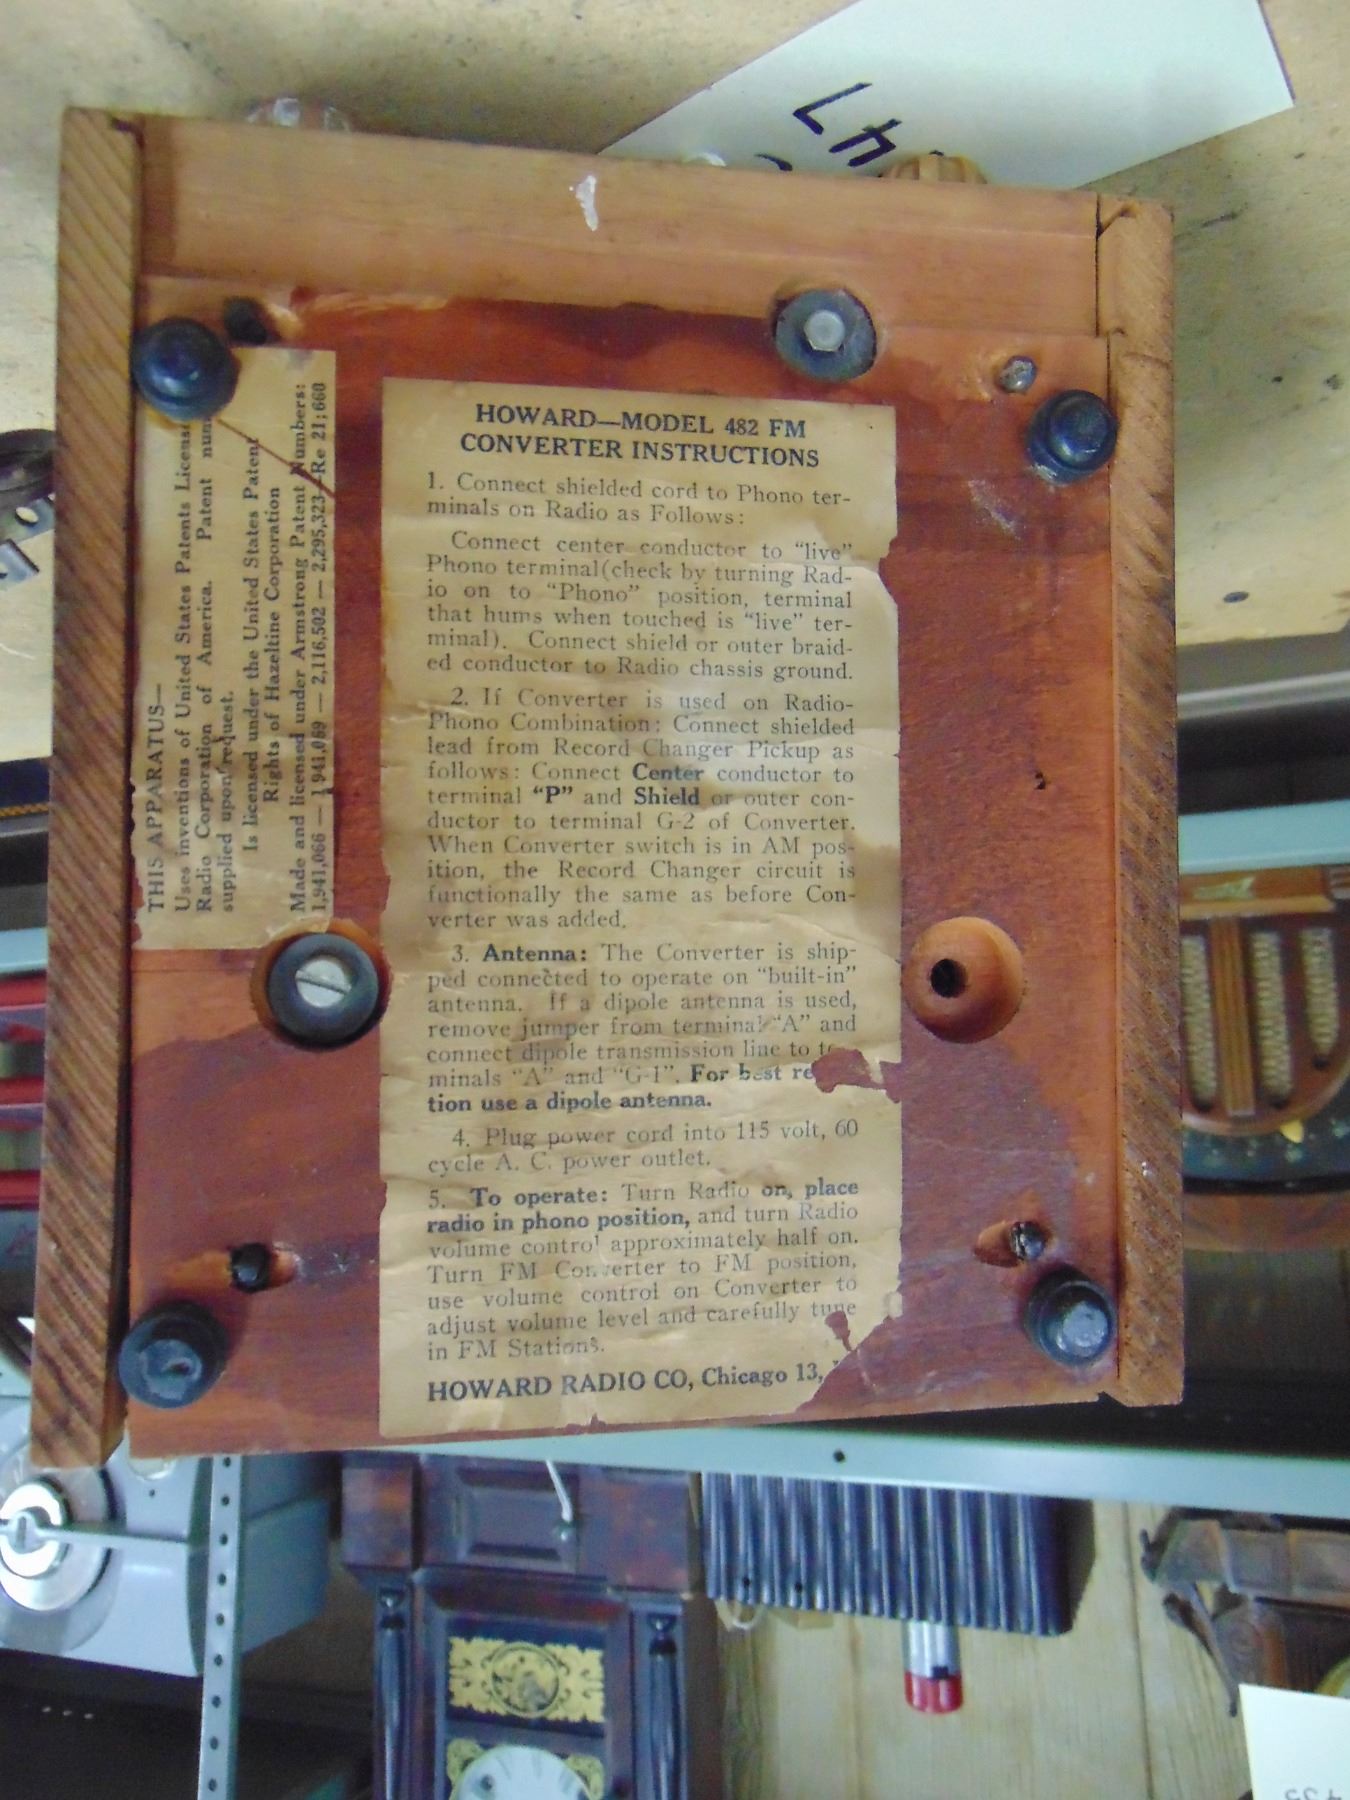 47
HOWARD—MODEL 482 FM
CONVERTER INSTRUCTIONS
1. Connect shielded cord to Phono ter-
minals on Radio as Follows:
Connect center conductor to "live"
Phono terminal(check by turning Rad-
io on to "Phono" position, terminal
that hums when touched is "live" ter-
minal). Connect shield or outer braid-
ed conductor to Radio chassis ground.
2. If Converter is used on Radio-
Phono Combination: Connect shielded
lead from Record Changer Pickup as
follows: Connect Center conductor to
terminal "P" and Shield or outer con-
ductor to terminal G-2 of Converter.
When Converter switch is in AM pos-
ition, the Record Changer circuit is
functionally the same as before Con-
verter was added.
3. Antenna: The Converter is ship-
ped connected to operate on "built-in"
antenna. If a dipole antenna is used,
remove jumper from terminal "A" and
connect dipole transmission line to
minals "A" and "G-1". For best
tion use a dipole antenna.
4. Plug power cord into 115 volt, 60
cycle A. C. power outlet.
5. To operate: Turn Radio on, place
radio in phono position, and turn Radio
volume control approximately half on.
Turn FM Converter to FM position,
use volume control on Converter to
adjust volume level and carefully tune
in FM Stations.
HOWARD RADIO CO, Chicago 13,
THIS APPARATUS—
Uses inventions of United States Patents License
Radio Corporation of America. Patent num
supplied upon request.
Is licensed under the United States Patent
Rights of Hazeltine Corporation
Made and licensed under Armstrong Patent Numbers:
1,941,066 — 1,941,069 — 2,116,502 — 2,295,323—Re 21;660